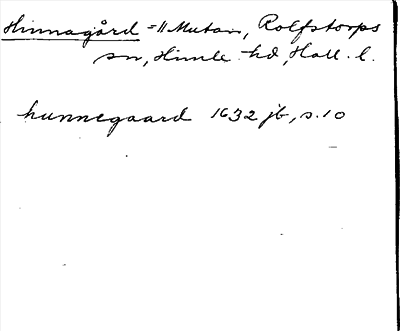 Hinnagård = 11 Mutan, Rolfstorps
sn, Himle hd, Hall. l.
hunnegaard 1632 jb, s. 10